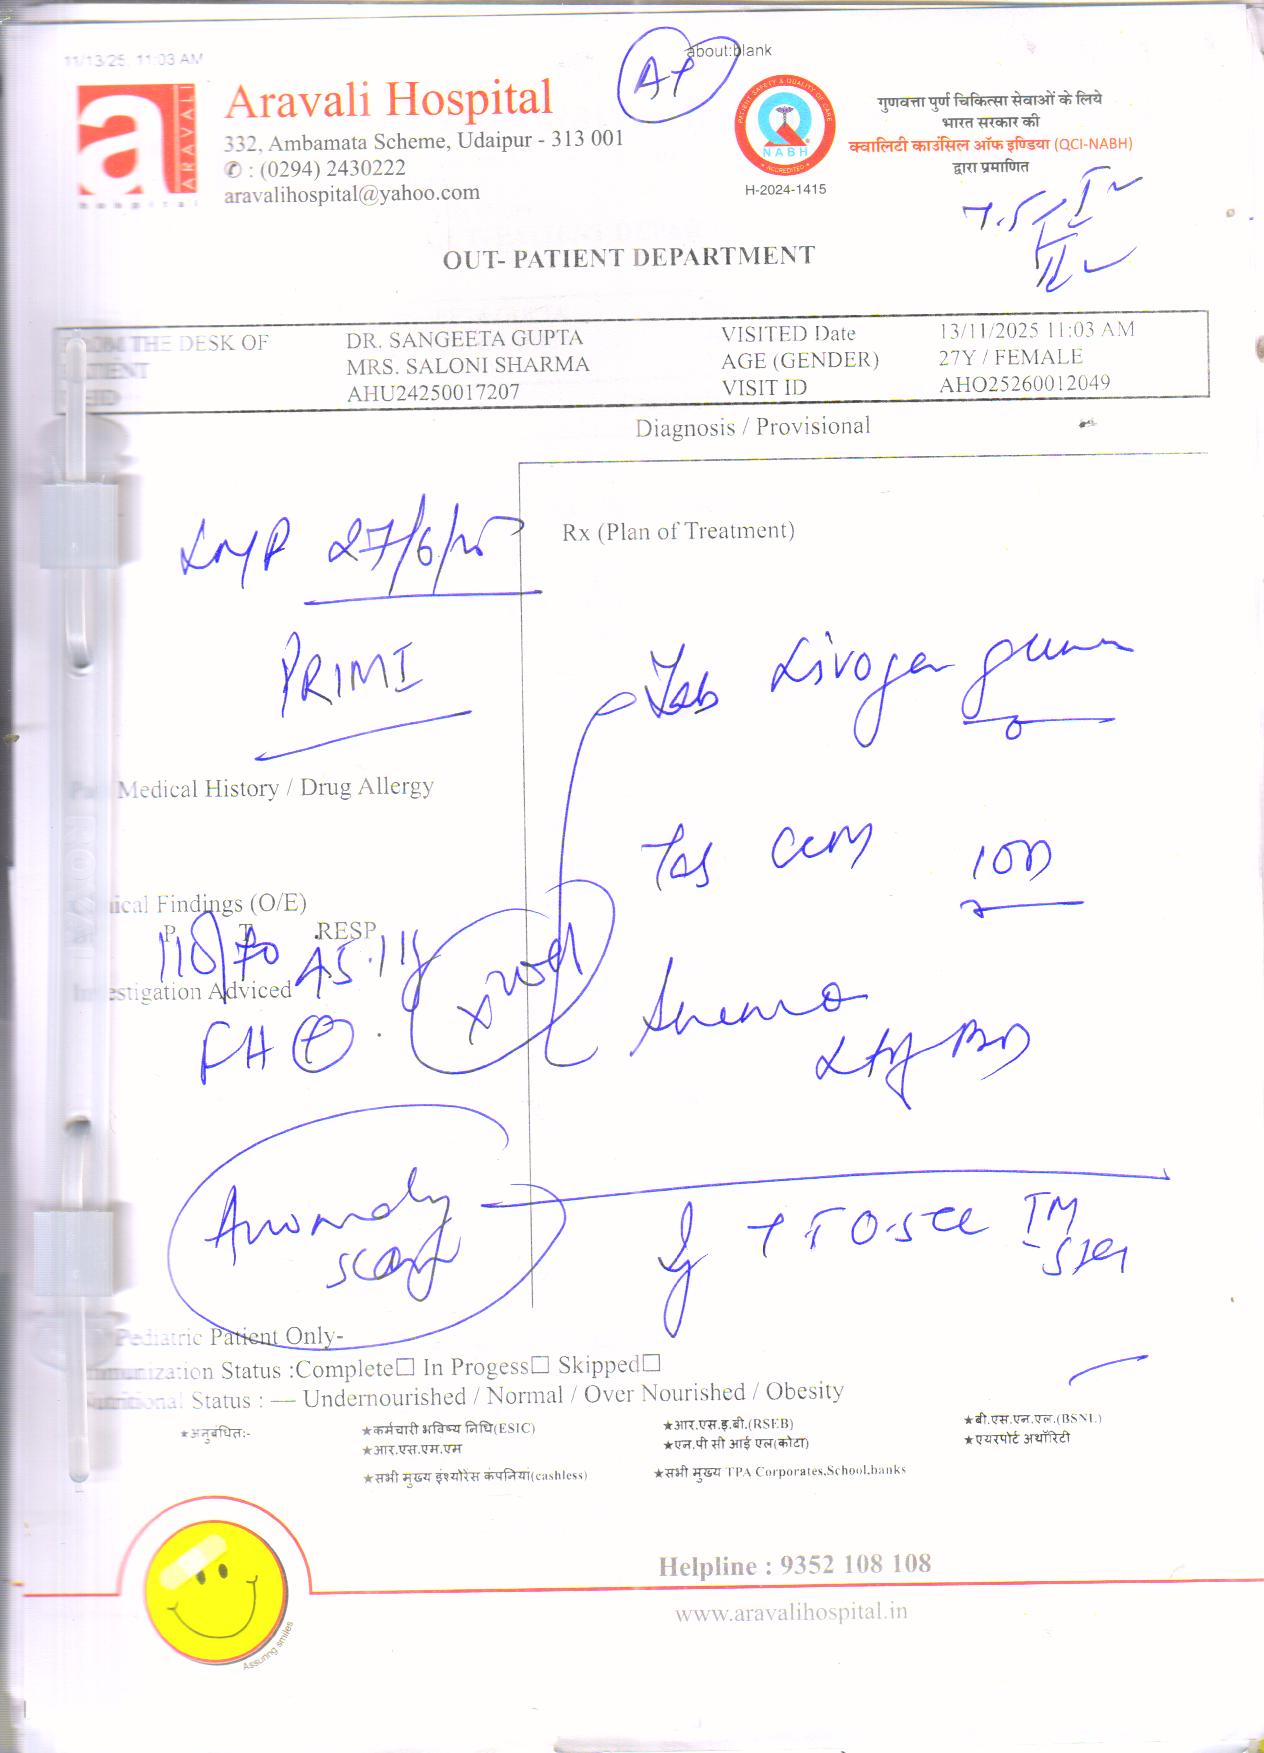 11/13/25, 11:03 AM
about:blank
AP
ARAVALI
hospital
Aravali Hospital
332, Ambamata Scheme, Udaipur - 313 001
✆ : (0294) 2430222
aravalihospital@yahoo.com
PATIENT SAFETY & QUALITY OF CARE
NABH
ACCREDITED
H-2024-1415
गुणवत्ता पुर्ण चिकित्सा सेवाओं के लिये
भारत सरकार की
क्वालिटी काउंसिल ऑफ इण्डिया (QCI-NABH)
द्वारा प्रमाणित
I
II
OUT- PATIENT DEPARTMENT
THE DESK OF DR. SANGEETA GUPTA VISITED Date 13/11/2025 11:03 AM
MRS. SALONI SHARMA AGE (GENDER) 27Y / FEMALE
AHU24250017207 VISIT ID AHO25260012049
Diagnosis / Provisional
LMP 27/6/25
PRIMI
Rx (Plan of Treatment)
Tab Livogen
Tab CCM 1OD
BD
Medical History / Drug Allergy
Findings (O/E)
P T RESP
110/70 45.1
Investigation Adviced
FH ⊕
Anomaly
scan
TT 0.5cc IM
Pediatric Patient Only-
Status :Complete☐ In Progess☐ Skipped☐
Status : — Undernourished / Normal / Over Nourished / Obesity
★अनुबंधित:- ★कर्मचारी भविष्य निधि(ESIC) ★आर.एस.इ.बी.(RSEB) ★बी.एस.एन.एल.(BSNL)
★आर.एस.एम.एम ★एन.पी सी आई एल(कोटा) ★एयरपोर्ट अथॉरिटी
★सभी मुख्य इंश्योरेंस कंपनियां(cashless) ★सभी मुख्य TPA Corporates.School.banks
Assuring smiles
Helpline : 9352 108 108
www.aravalihospital.in